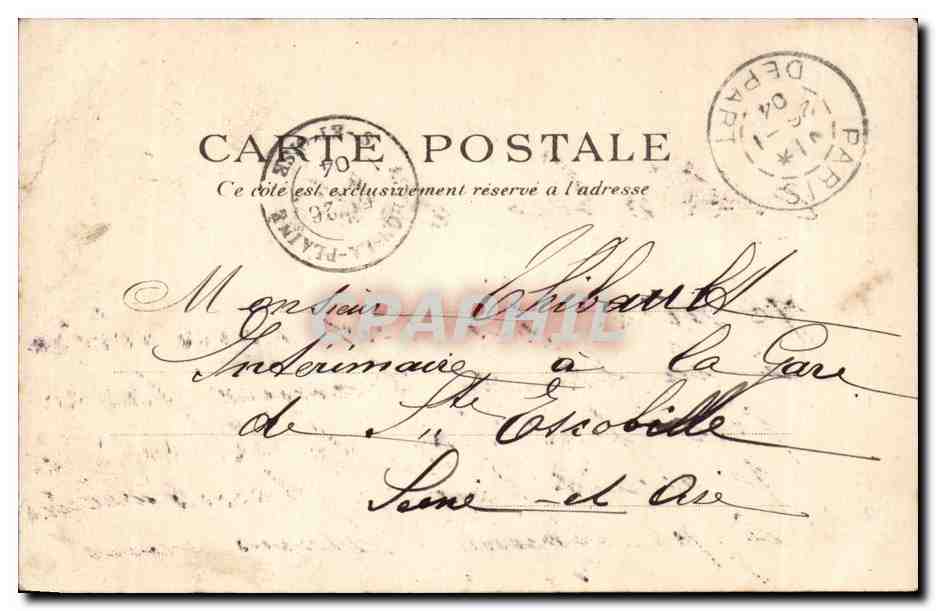 CARTE POSTALE
Ce côté est exclusivement réservé à l'adresse
PARIS
DEPART
04
04
26
LA-PLAINE
Monsieur Thibault
CPAPHIL
Intérimaire à la Gare
de Ste Escobille
Seine et Oise